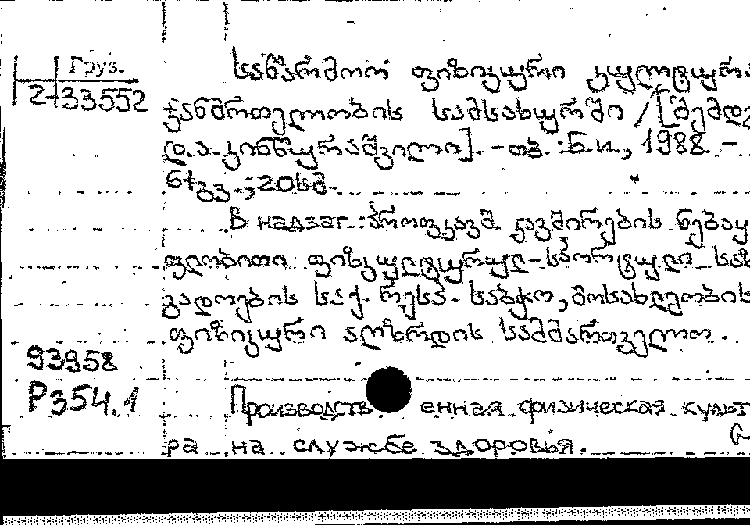 Груз.
2-33552
საწარმოო ფიზიკური კულტურა
ჯანმრთელობის სამსახურში /[შემდგ
დ.ა.კინწურაშვილი]. -თბ. :Б.и., 1988 -
6სმ.
В надзаг.:პროფკავშ. კავშირების ნებაყ
ფლობითი ფიზკულტურულ-სპორტული საზ
გადოების საქ. რესპ. საბჭო, მოსახლეობის
ფიზიკური აღზრდის სამმართველო.
93958
P354.1
Производственная физическая культ
ра на службе здоровья.